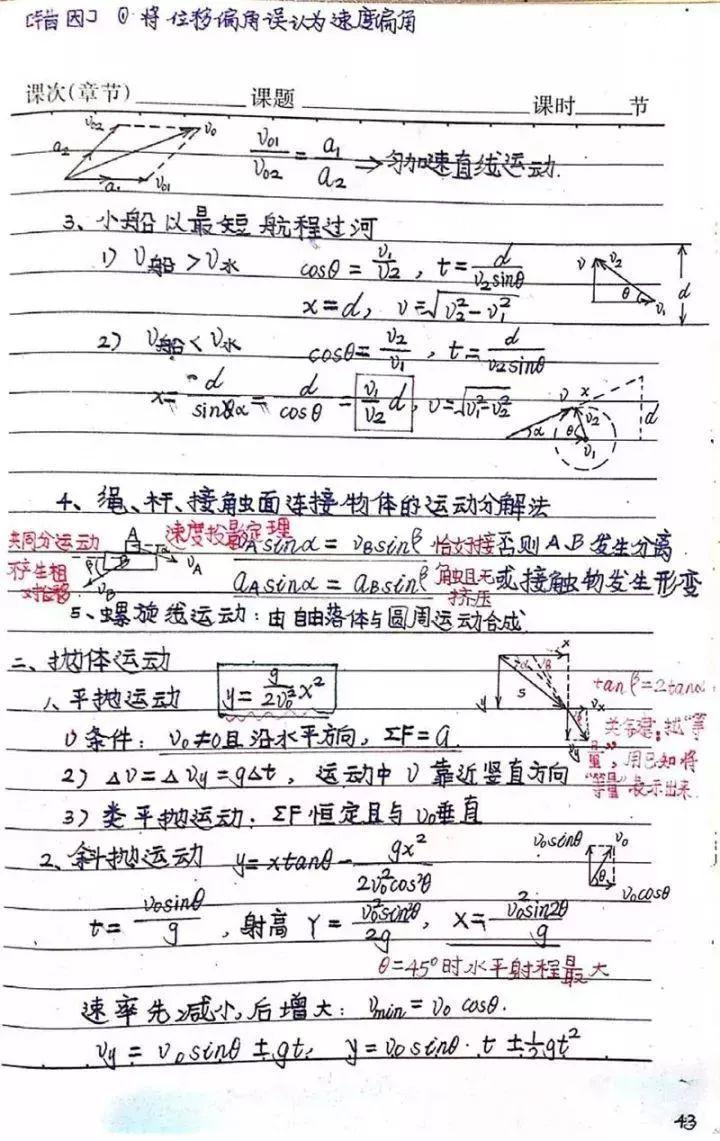 [错因] ① 将位移偏角误认为速度偏角
课次(章节)________课题________________课时____节
v₀₂ v₀ a₂ a₁ v₀₁ v₀₁/v₀₂ = a₁/a₂ → 匀加速直线运动.
3、小船以最短航程过河
1) v船 > v水 cosθ = v₁/v₂, t = d/(v₂sinθ) v v₂ θ v₁ d
x = d, v = √(v₂²-v₁²)
2) v船 < v水 cosθ = v₂/v₁, t = d/(v₂sinθ)
x = d/sinα = d/cosθ = v₁/v₂ d, v = √(v₁²-v₂²) v x v₂ α θ v₁ d
4、绳、杆、接触面连接物体的运动分解法
共同分运动 A 速度投影定理 vAsinα = vBsinβ 恰好接 否则A、B发生分离
不产生相 B β α vA vB aAsinα = aBsinβ 触且无 或接触物发生形变
对推移 挤压
5、螺旋线运动:由自由落体与圆周运动合成
二、抛体运动
1、平抛运动 y = g/(2v₀²) x² x α β s y vx vy tanβ=2tanα
1) 条件: v₀≠0且沿水平方向, ΣF=G. 关键:找“等
2) Δv=Δvy=gΔt, 运动中v靠近竖直方向 量”,用已知将
3) 类平抛运动. ΣF恒定且与v₀垂直 “等量”表示出来
2、斜抛运动 y=xtanθ - gx²/(2v₀²cos²θ) v₀sinθ v₀ θ v₀cosθ
t = v₀sinθ/g, 射高 Y = v₀²sin²θ/2g, X = v₀²sin2θ/g
θ=45°时水平射程最大
速率先减小,后增大: vmin = v₀ cosθ.
vy = v₀sinθ ± gt, y = v₀sinθ·t ± ½gt²
43